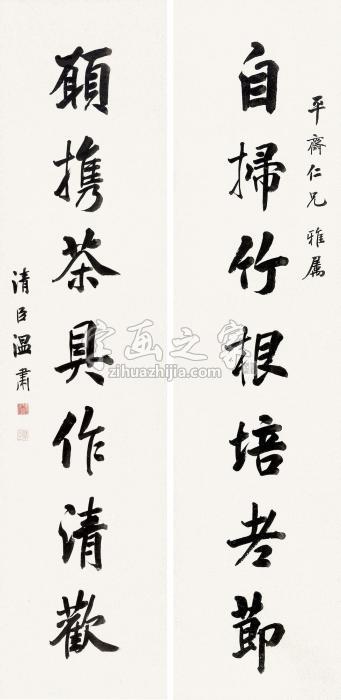 平齋仁兄雅屬
自掃竹根培老節
願攜茶具作清歡
清臣溫肅
字画之家
zihuazhijia.com